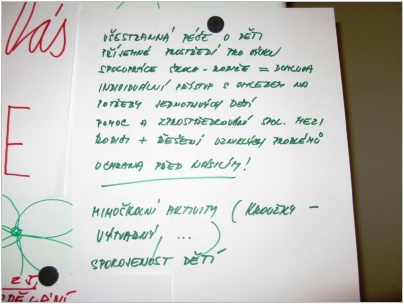 Vás
E
VŠESTRANNÁ PÉČE O DĚTI
PŘÍJEMNÉ PROSTŘEDÍ PRO VÝUKU
SPOLUPRÁCE ŠKOLA - RODIČE = DOHODA
INDIVIDUÁLNÍ PŘÍSTUP S OHLEDEM NA
POTŘEBY JEDNOTLIVÝCH DĚTÍ
POMOC A ZPROSTŘEDKOVÁNÍ SPOL. MEZI
RODIČI + ŘEŠENÍ VZNIKLÝCH PROBLÉMŮ
OCHRANA PŘED NÁSILÍM!
MIMOŠKOLNÍ AKTIVITY (KROUŽKY -
VÝTVARNÝ, ... )
SPOKOJENOST DĚTÍ